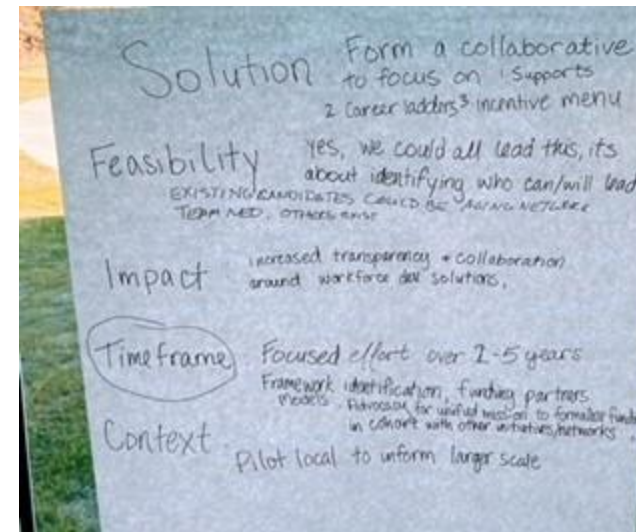 Solution Form a collaborative
to focus on 1 Supports
2 Career ladders 3 incentive menu
Feasibility Yes, we could all lead this, its
about identifying who can/will lead
EXISTING CANDIDATES COULD BE AGING NETWORK
TEAM MED, OTHERS EXIST
Impact increased transparency + collaboration
around workforce dev solutions,
Timeframe Focused effort over 2-5 years
Framework identification, funding partners
models Advocacy for unified mission to formalize
in cohort with other initiatives/networks
Context
Pilot local to inform larger scale